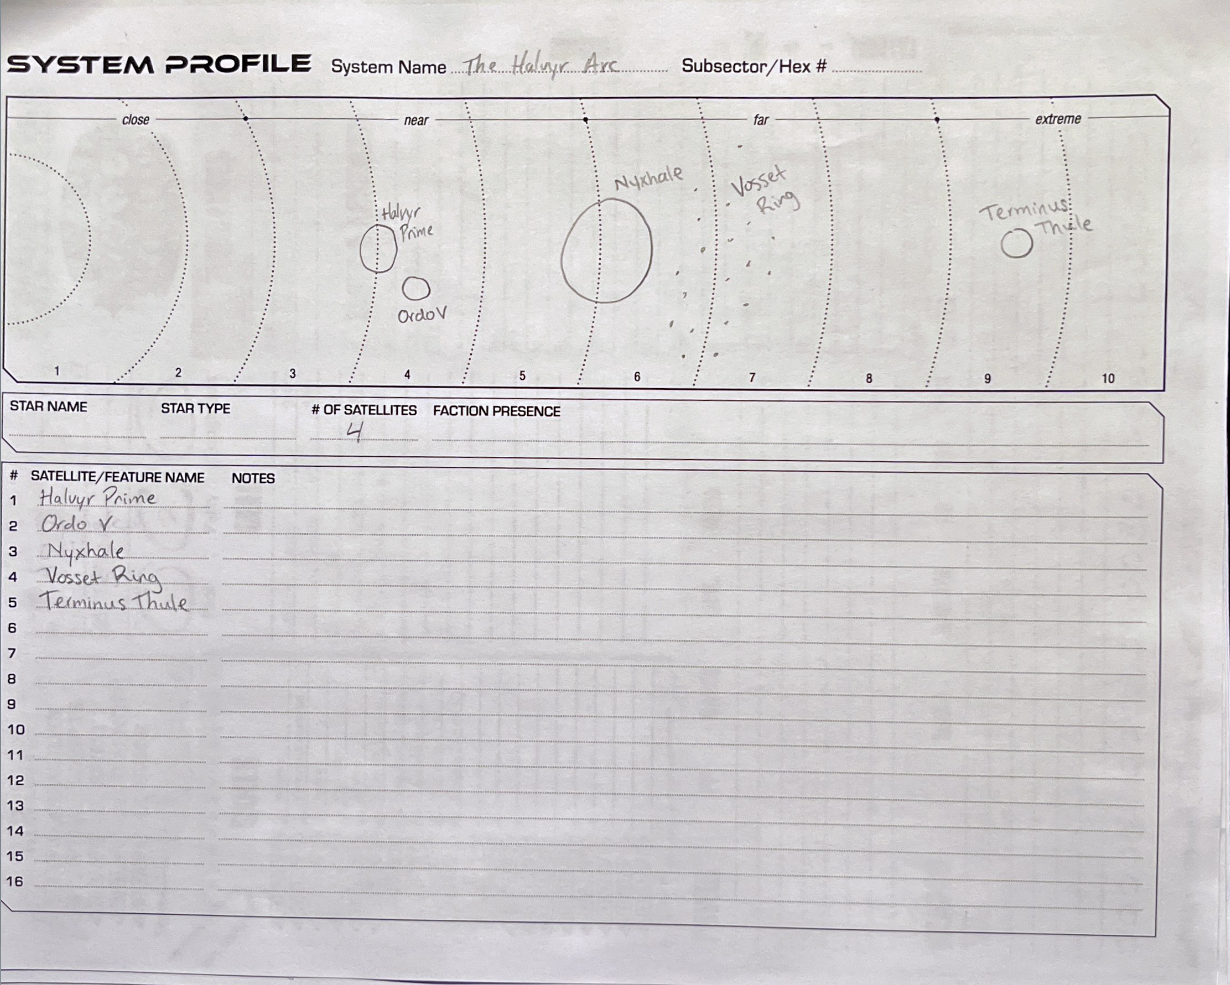 SYSTEM PROFILE System Name The Halvyr Arc Subsector/Hex #
close near far extreme
Nyxhale Vosset
Ring
Halvyr
Prime
Terminus
Thule
Ordo V
1 2 3 4 5 6 7 8 9 10
STAR NAME STAR TYPE # OF SATELLITES FACTION PRESENCE
4
# SATELLITE/FEATURE NAME NOTES
1 Halvyr Prime
2 Ordo V
3 Nyxhale
4 Vosset Ring
5 Terminus Thule
6
7
8
9
10
11
12
13
14
15
16